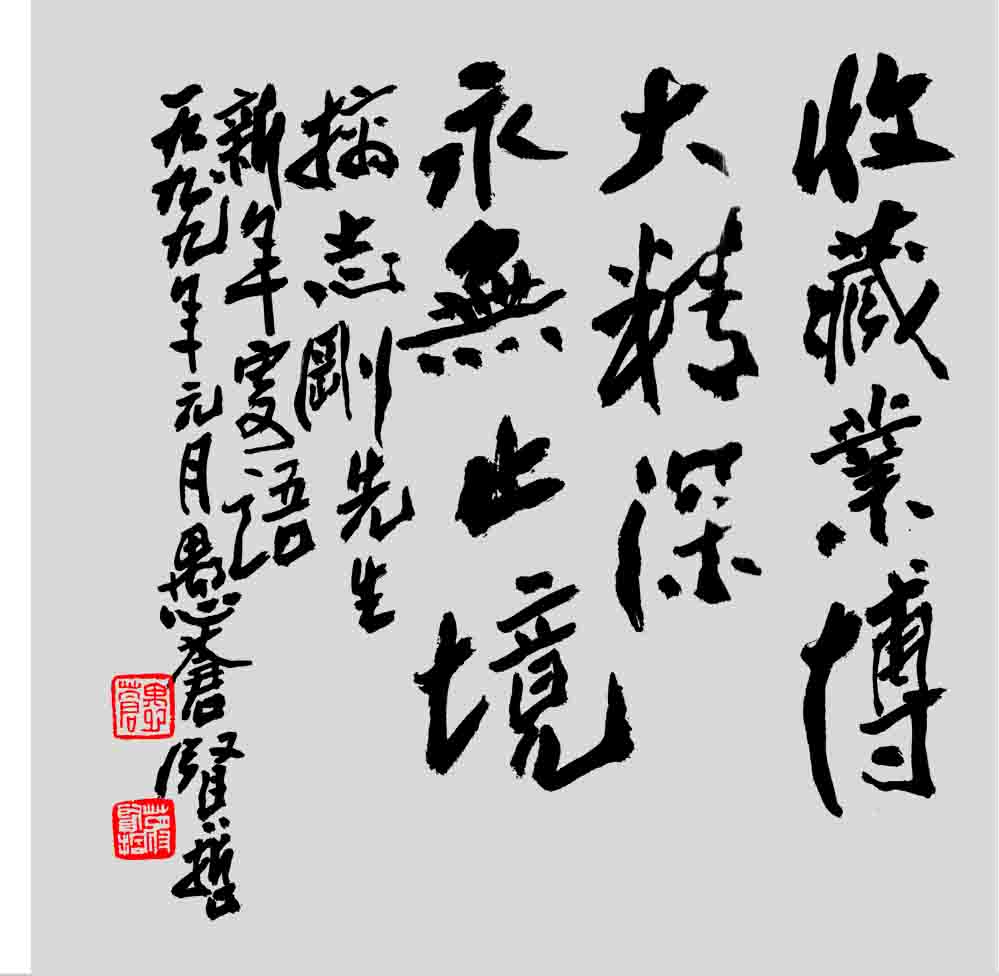 收藏業博
大精深
永無止境
摘志剛先生
新年語
一九九九年元月愚賢哲